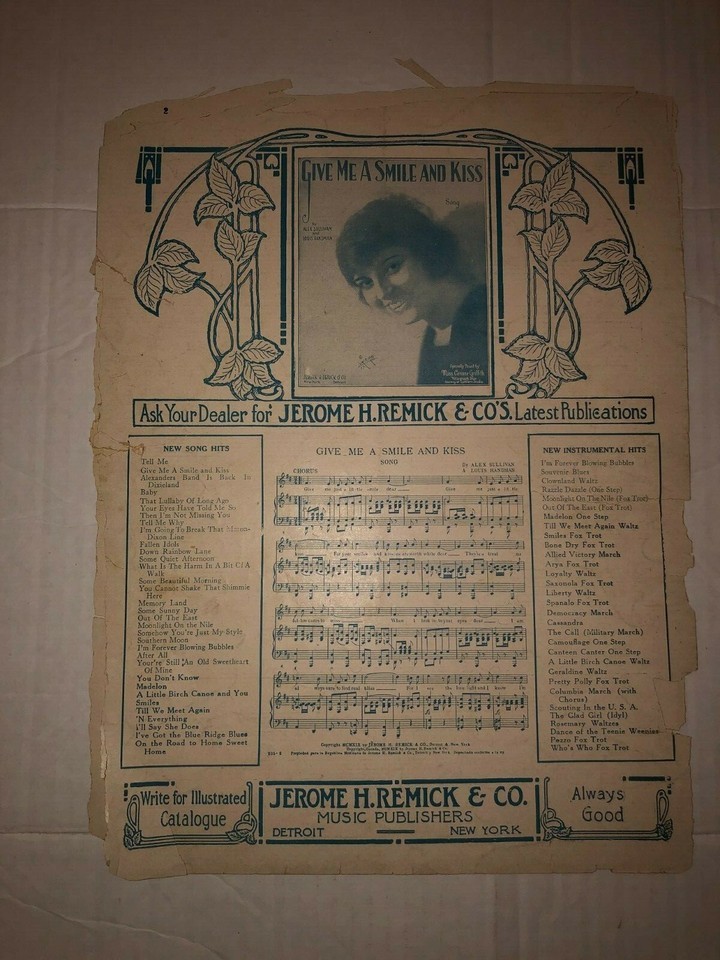 GIVE ME A SMILE AND KISS
Song
By
ALEX SULLIVAN
and
Ask Your Dealer for JEROME H. REMICK & CO'S. Latest Publications
NEW SONG HITS
Tell Me
Give Me A Smile and Kiss
Alexanders Band Is Back In
Dixieland
Baby
That Lullaby Of Long Ago
Your Eyes Have Told Me So
Then I'm Not Missing You
Tell Me Why
I'm Going To Break That Mason-
Dixon Line
Fallen Idols
Down Rainbow Lane
Some Quiet Afternoon
What Is The Harm In A Bit Of A
Walk
Some Beautiful Morning
You Cannot Shake That Shimmie
Here
Memory Land
Some Sunny Day
Out Of The East
Moonlight On the Nile
Somehow You're Just My Style
Southern Moon
I'm Forever Blowing Bubbles
After All
Your're Still An Old Sweetheart
Of Mine
You Don't Know
Madelon
A Little Birch Canoe and You
Smiles
Till We Meet Again
'N Everything
I'll Say She Does
I've Got the Blue Ridge Blues
On the Road to Home Sweet
Home
GIVE ME A SMILE AND KISS
SONG
By ALEX SULLIVAN
& LOUIS HANDMAN
CHORUS
NEW INSTRUMENTAL HITS
I'm Forever Blowing Bubbles
Souvenir Blues
Clownland Waltz
Razzle Dazzle (One Step)
Moonlight On The Nile (Fox Trot)
Out Of The East (Fox Trot)
Madelon One Step
Till We Meet Again Waltz
Smiles Fox Trot
Bone Dry Fox Trot
Allied Victory March
Arya Fox Trot
Loyalty Waltz
Saxonola Fox Trot
Liberty Waltz
Spanalo Fox Trot
Democracy March
Cassandra
The Call (Military March)
Camouflage One Step
Canteen Canter One Step
A Little Birch Canoe Waltz
Geraldine Waltz
Pretty Polly Fox Trot
Columbia March (with
Chorus)
Scouting In the U. S. A.
The Glad Girl (Idyl)
Rosemary Waltzes
Dance of the Teenie Weenies
Pazzo Fox Trot
Who's Who Fox Trot
Copyright MCMXIX by JEROME H. REMICK & CO., Detroit & New York
Write for Illustrated
Catalogue
JEROME H. REMICK & CO.
MUSIC PUBLISHERS
DETROIT NEW YORK
Always
Good